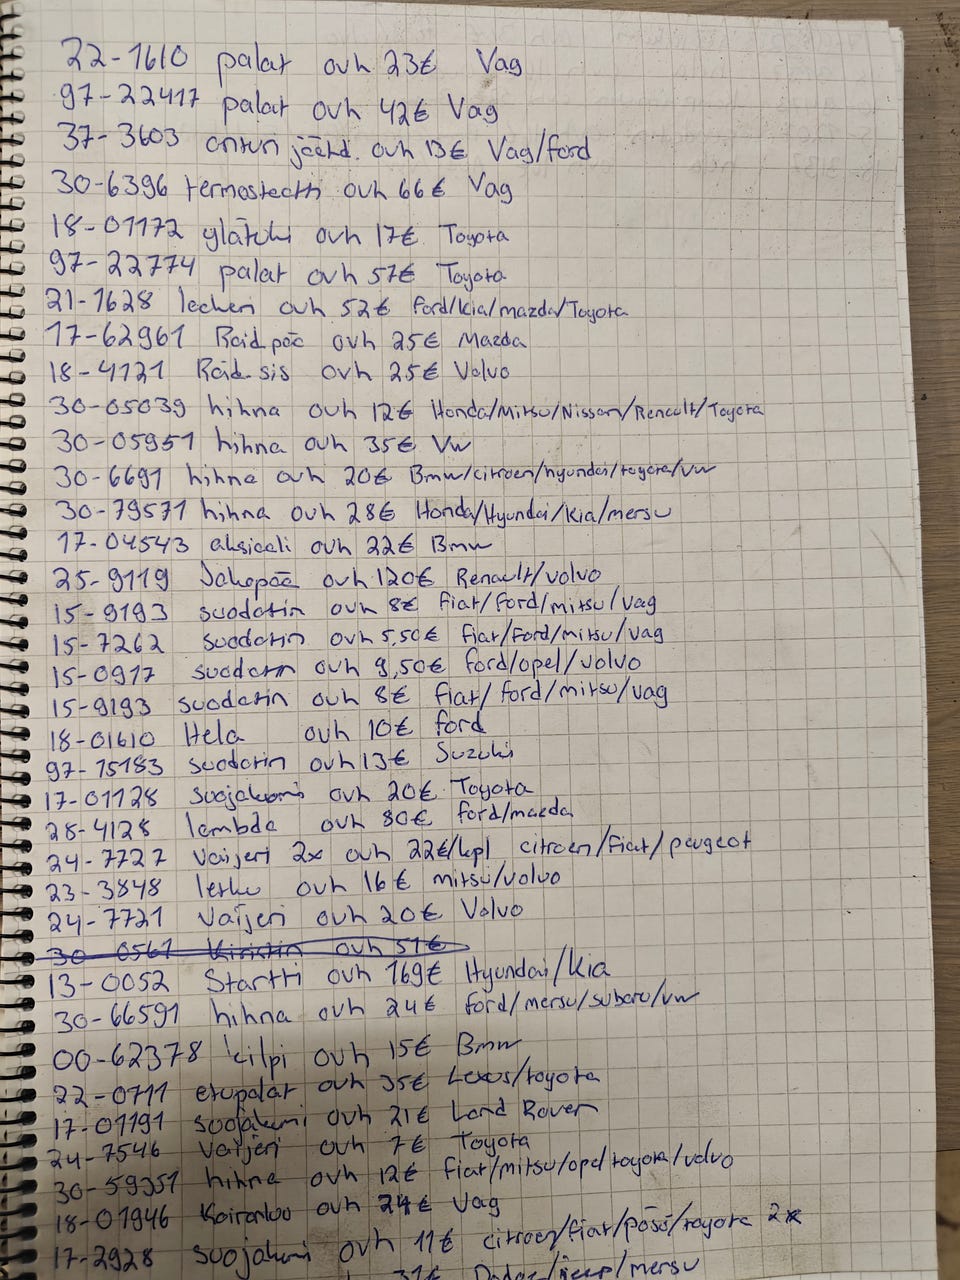 22-1610 palat ovh 23€ Vag
97-22417 palat ovh 42€ Vag
37-3603 anturi jäähd. ovh 13€ Vag/ford
30-6396 termostaatti ovh 66€ Vag
18-01172 ylätuki ovh 17€ Toyota
97-22774 palat ovh 57€ Toyota
21-1628 ovh 52€ ford/kia/mazda/Toyota
17-62961 Raid.pää ovh 25€ Mazda
18-4121 Raid.sis ovh 25€ Volvo
30-05039 hihna ovh 12€ Honda/Mitsu/Nissan/Renault/Toyota
30-05951 hihna ovh 35€ Vw
30-6691 hihna ovh 20€ Bmw/citroen/hyundai/toyota/vw
30-79571 hihna ovh 28€ Honda/Hyundai/Kia/mersu
17-04543 aksiaali ovh 22€ Bmw
25-9119 Jakopää ovh 120€ Renault/volvo
15-9193 suodatin ovh 8€ fiat/ford/mitsu/vag
15-7262 suodatin ovh 5,50€ fiat/ford/mitsu/vag
15-0917 suodatin ovh 9,50€ ford/opel/volvo
15-9193 suodatin ovh 8€ fiat/ford/mitsu/vag
18-01610 Hela ovh 10€ ford
97-15183 suodatin ovh 13€ Suzuki
17-01128 suojakumi ovh 20€ Toyota
28-4128 lambda ovh 80€ ford/mazda
24-7727 vaijeri 2x ovh 22€/kpl citroen/fiat/peugeot
23-3848 letku ovh 16€ mitsu/volvo
24-7721 vaijeri ovh 20€ Volvo
30-0561 Kiristin ovh 51€
13-0052 Startti ovh 169€ Hyundai/Kia
30-66591 hihna ovh 24€ ford/mersu/subaru/vw
00-62378 kilpi ovh 15€ Bmw
22-0711 etupalat ovh 35€ Lexus/toyota
17-01191 suojakumi ovh 21€ Land Rover
24-7546 vaijeri ovh 7€ Toyota
30-59351 hihna ovh 12€ fiat/mitsu/opel toyota/volvo
18-01946 Koiranluu ovh 24€ Vag
17-2928 suojakumi ovh 11€ citroen/fiat/pösö/toyota 2x
31€ Dodge/jeep/mersu